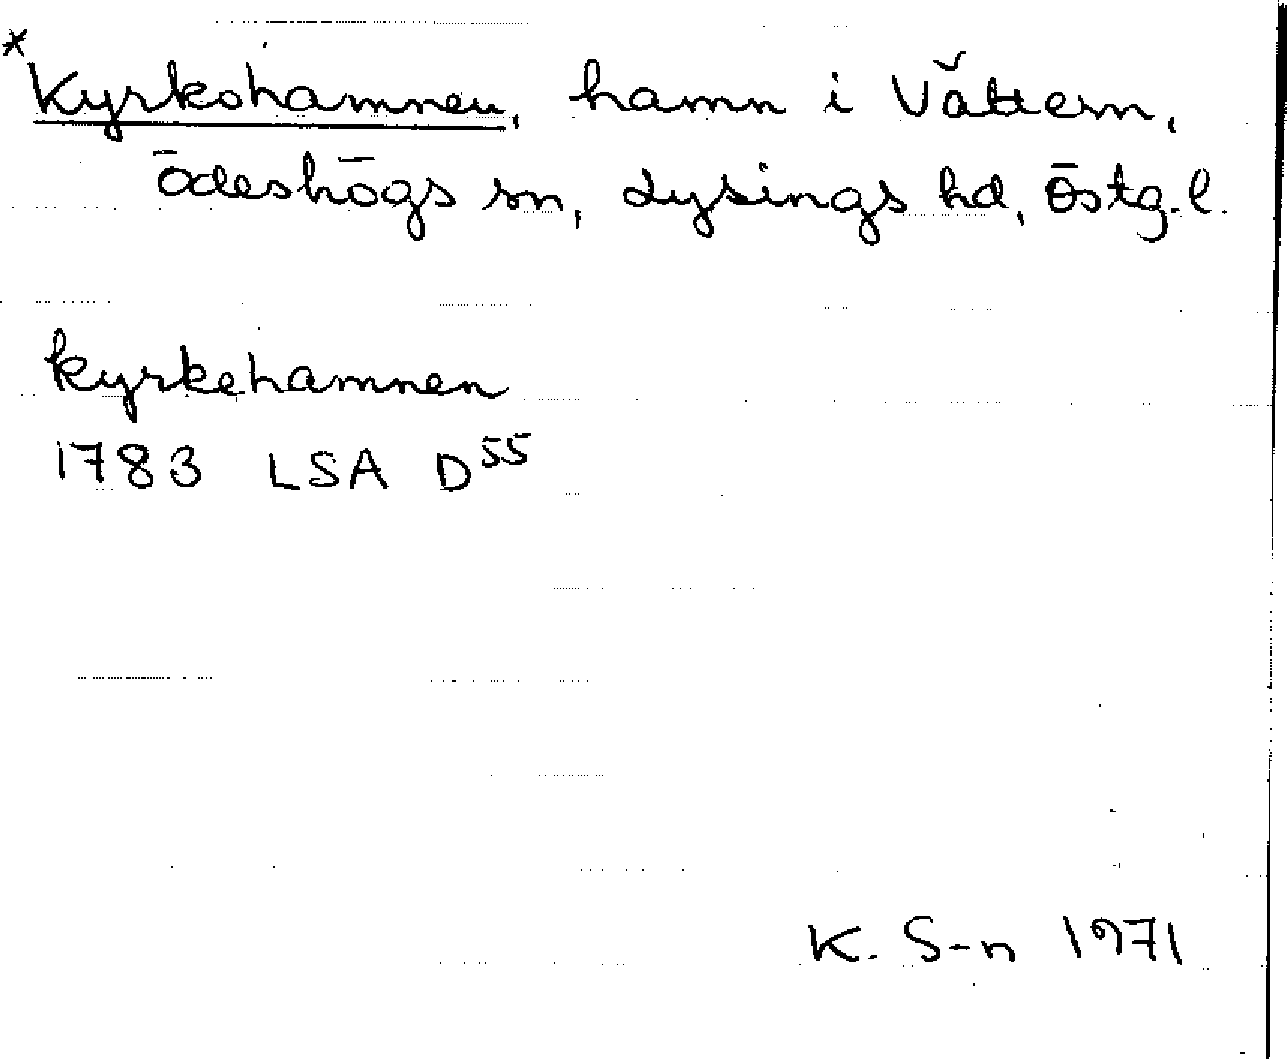 *Kyrkohamnen, hamn i Vättern,
Ödeshögs sn, Lysings hd, Östg.l.
kyrkehamnen
1783 LSA D55
K. S-n 1971